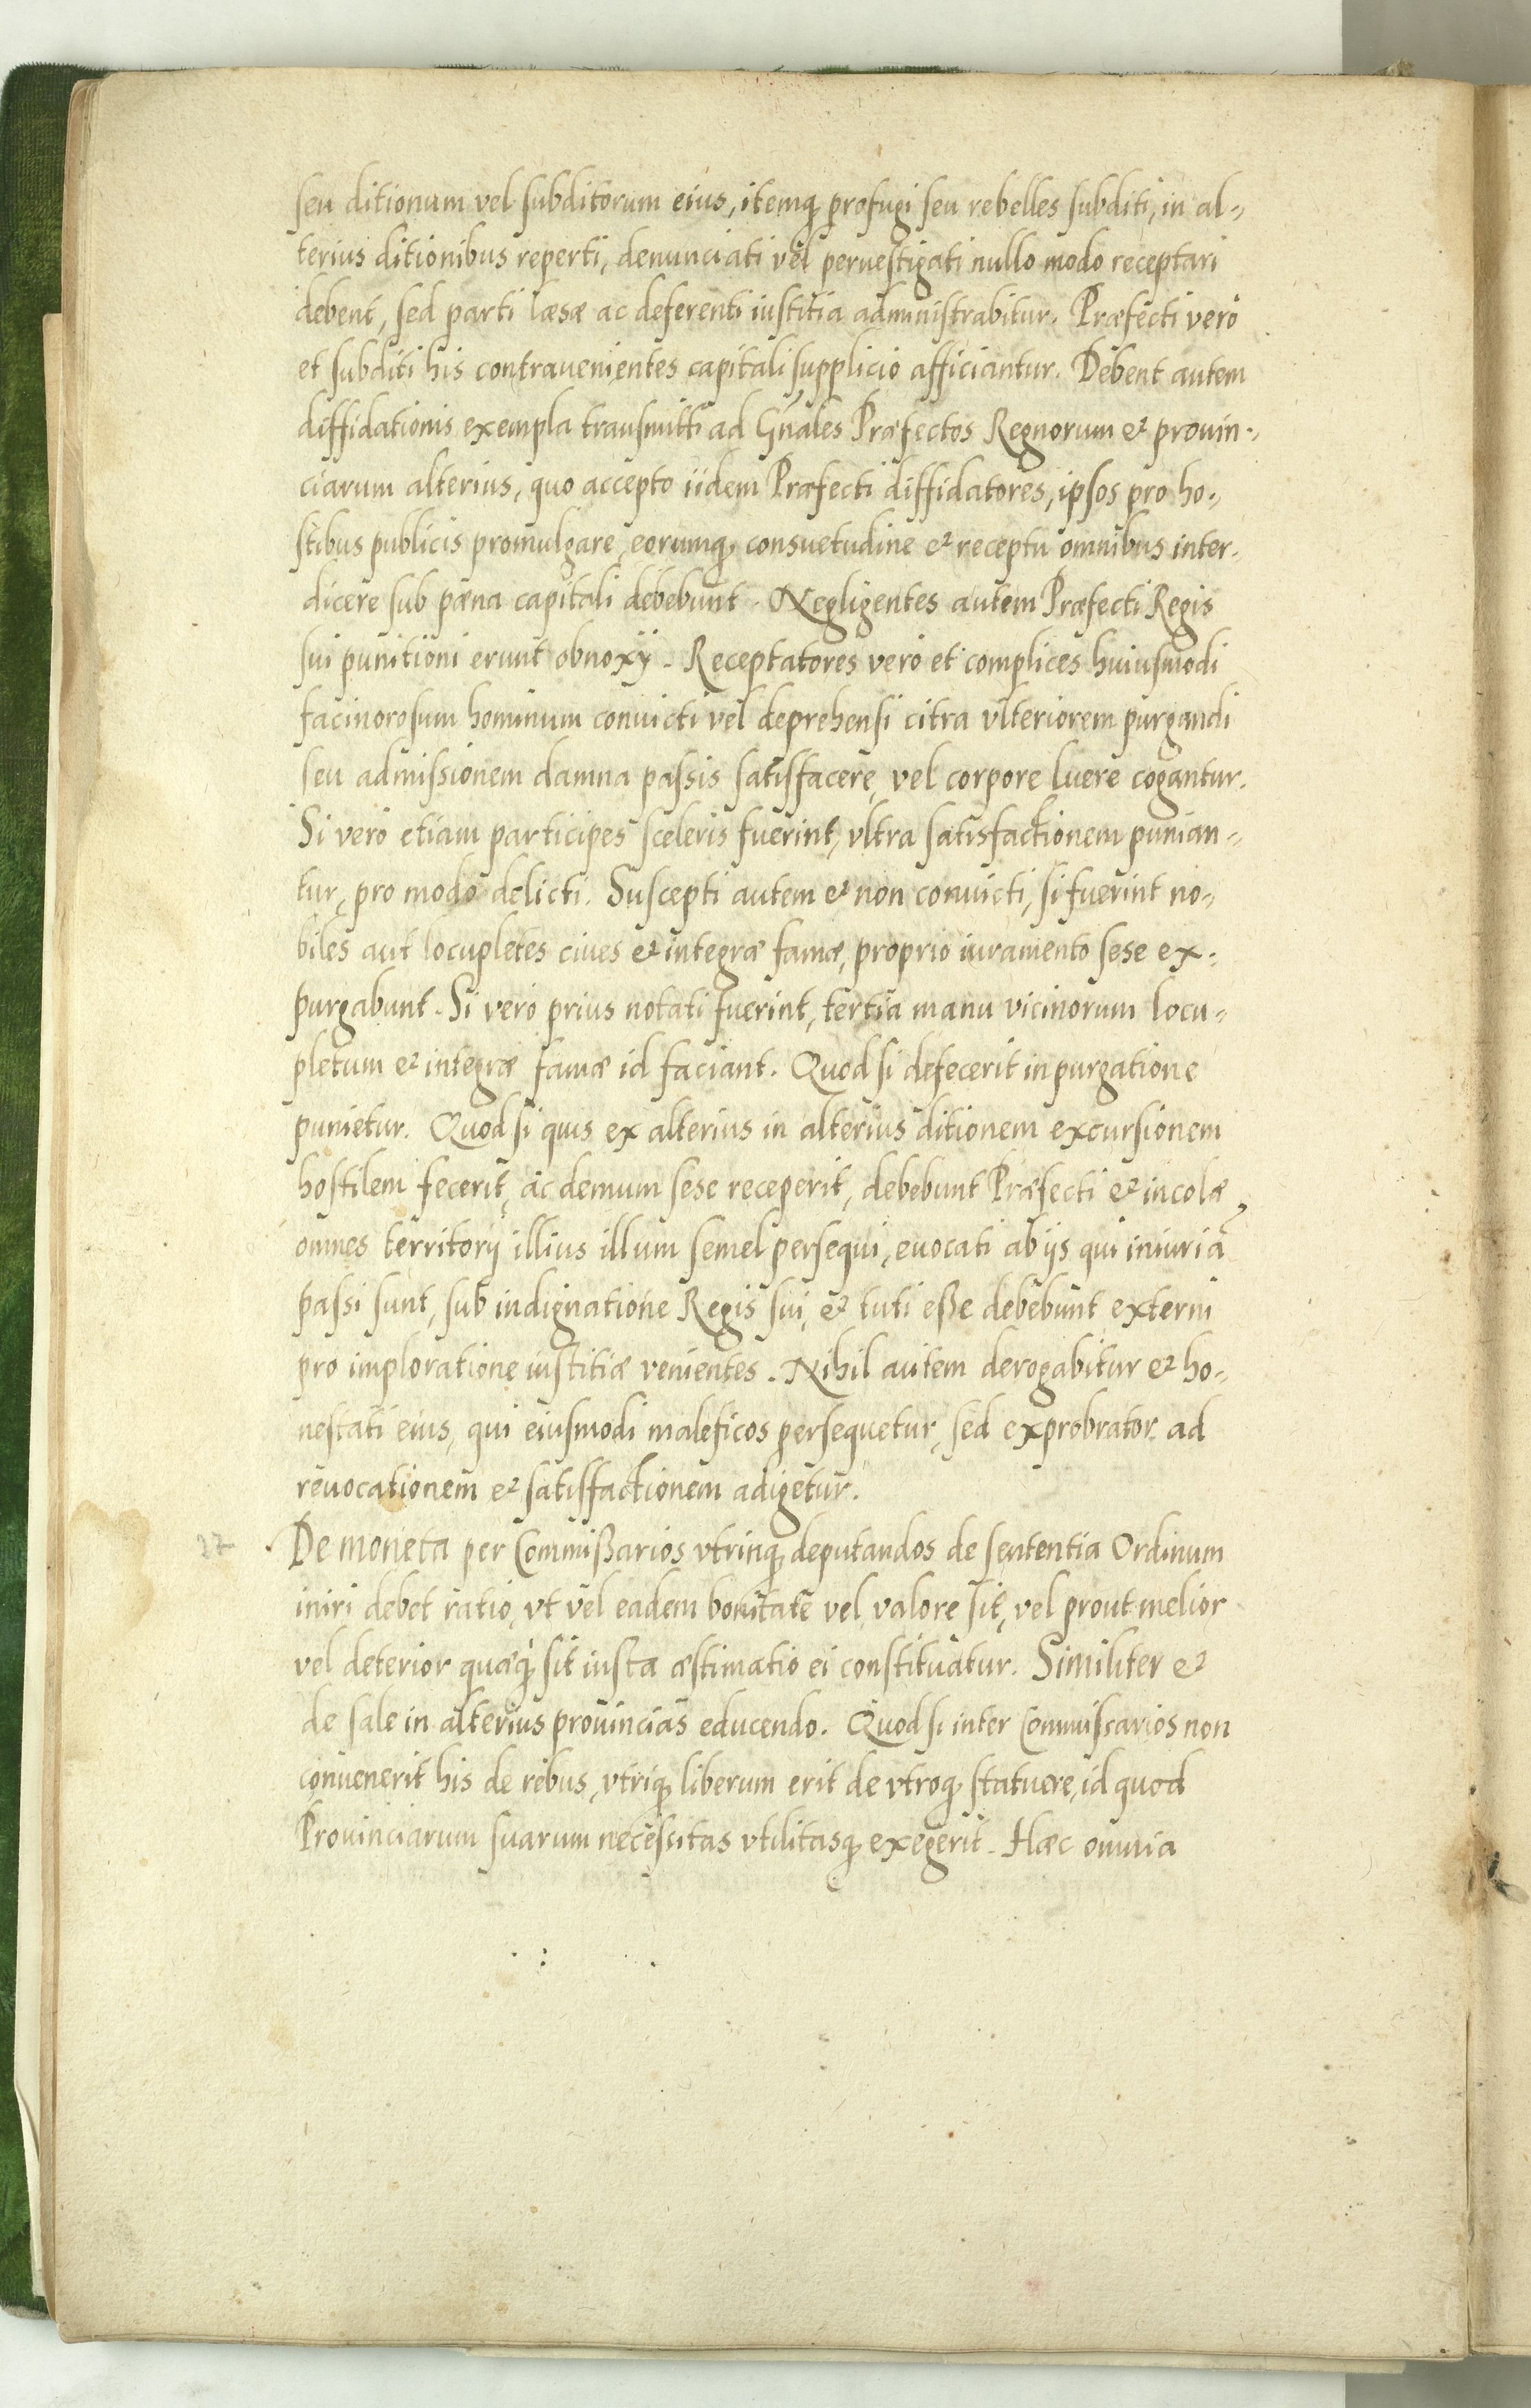 seu ditionum vel subditorum eius, itemq profugi seu rebelles subditi, in al-
terius ditionibus reperti, denunciati vel peruestigati nullo modo receptari
debent, sed parti læsæ ac deferenti iustitia administrabitur. Præfecti vero
et subditi his contrauenientes capitali supplicio afficiantur. Debent autem
diffidationis exempla transmitti ad Gn̄ales Præfectos Regnorum et prouin-
ciarum alterius, quo accepto iidem Præfecti diffidatores, ipsos pro ho-
stibus publicis promulgare, eorumq consuetudine et receptu omnibus inter-
dicere sub pœna capitali debebunt. Negligentes autem Præfecti Regis
sui punitioni erunt obnoxÿ. Receptatores vero et complices huiusmodi
facinorosum hominum conuicti vel deprehensi citra vlteriorem purgandi
seu admissionem damna passis satisfacere, vel corpore luere cogantur.
Si vero etiam participes sceleris fuerint, vltra satisfactionem punian-
tur, pro modo delicti. Suscepti autem et non conuicti, si fuerint no-
biles aut locupletes ciues et integræ famæ, proprio iuramento sese ex-
purgabunt. Si vero prius notati fuerint, tertia manu vicinorum locu-
pletum et integræ famæ id faciant. Quod si defecerit in purgatione
punietur. Quod si quis ex alterius in alterius ditionem excursionem
hostilem fecerit, ac demum sese receperit, debebunt Præfecti et incolæ
omnes territorÿ illius illum semel persequi, euocati ab ÿs qui iniuriā
passi sunt, sub indignatione Regis sui, et tuti esse debebunt externi
pro imploratione iustitiæ venientes. Nihil autem derogabitur et ho-
nestati eius, qui eiusmodi maleficos persequetur, sed exprobrator ad
reuocationem et satisfactionem adigetur.
27 De moneta per Commißarios vtrinq deputandos de sententia Ordinum
iniri debet ratio, vt vel eadem bonitate vel valore sit, vel prout melior
vel deterior quæq sit iusta æstimatio ei constituatur. Similiter et
de sale in alterius prouincias educendo. Quod si inter Commissarios non
conuenerit his de rebus, vtriq liberum erit de vtroq statuere, id quod
Prouinciarum suarum necessitas vtilitasq exegerit. Hæc omnia